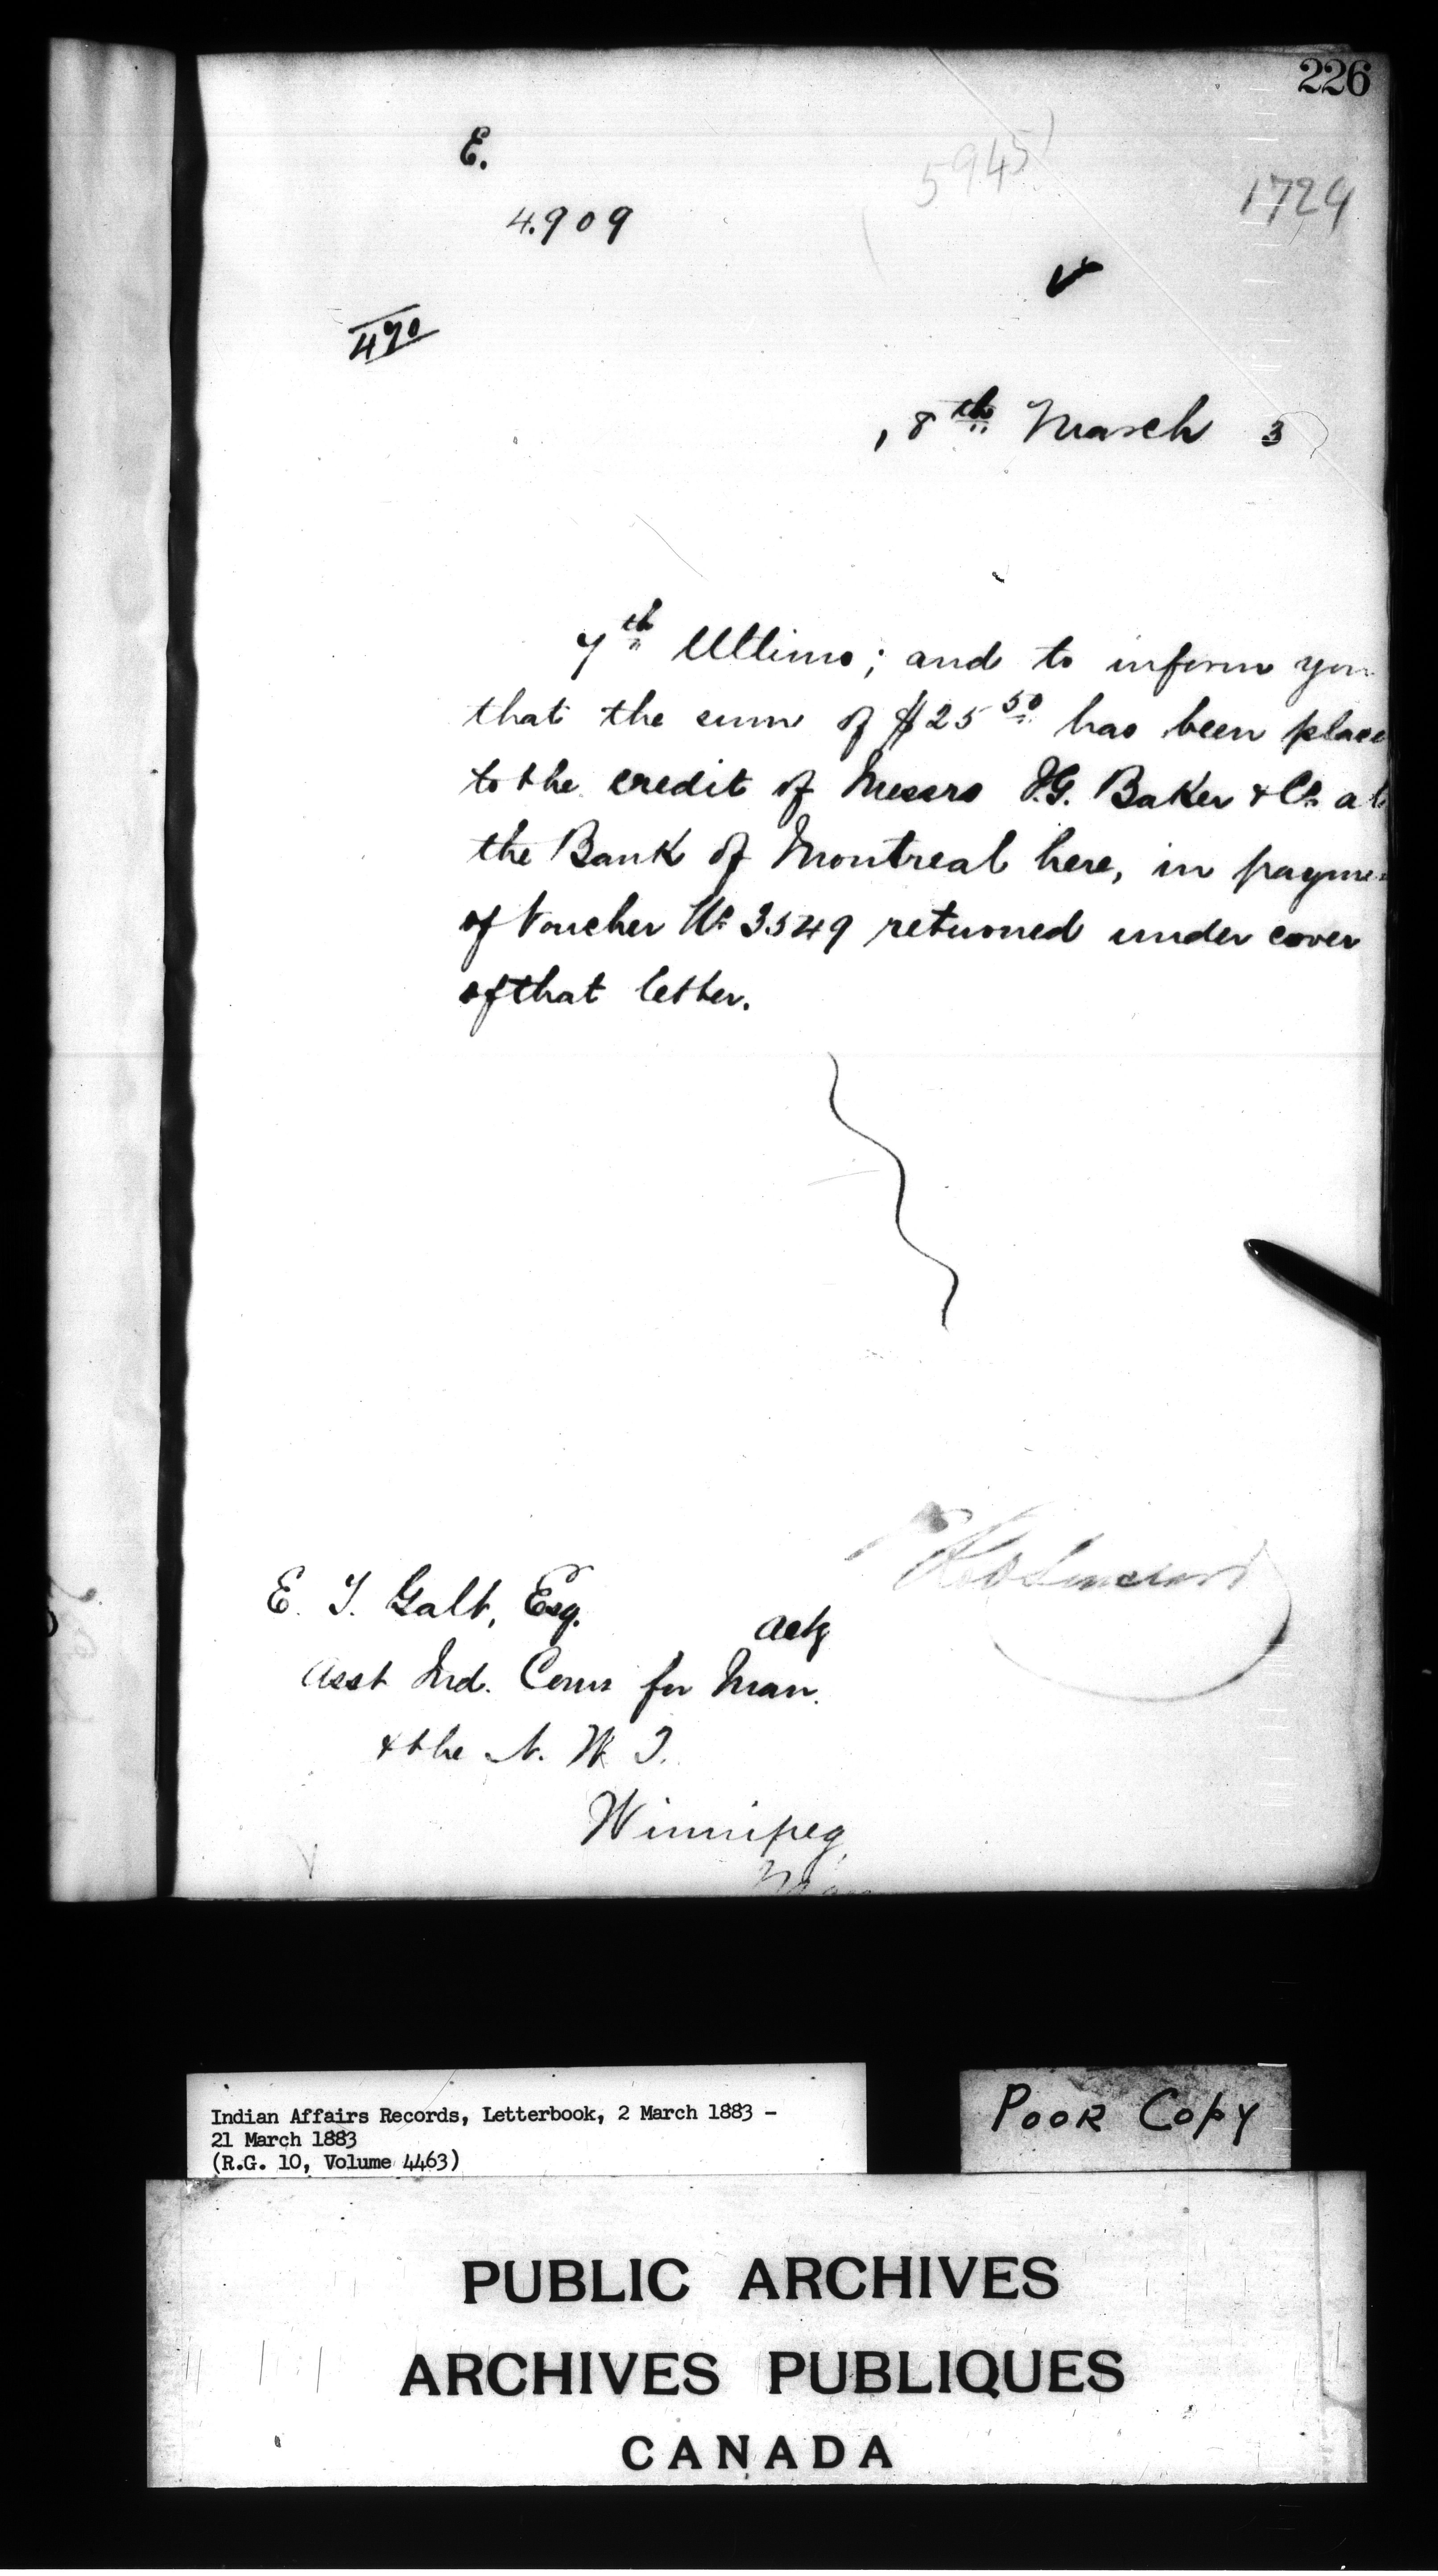 226
E.
5945
1724
4.909
470
8th March 3
7th Ultimo; and to inform you
that the sum of $25 50 has been place
to the credit of Messrs I.G. Baker & Co at
the Bank of Montreal here, in payme
of Voucher No 3549 returned under cover
of that letter.
E. T. Galt, Esq.
actg
Asst Ind. Comr for Man.
& the N. W. T.
Winnipeg,
Man
Indian Affairs Records, Letterbook, 2 March 1883 -
21 March 1883
(R.G. 10, Volume 4463)
POOR COPY
PUBLIC ARCHIVES
ARCHIVES PUBLIQUES
CANADA